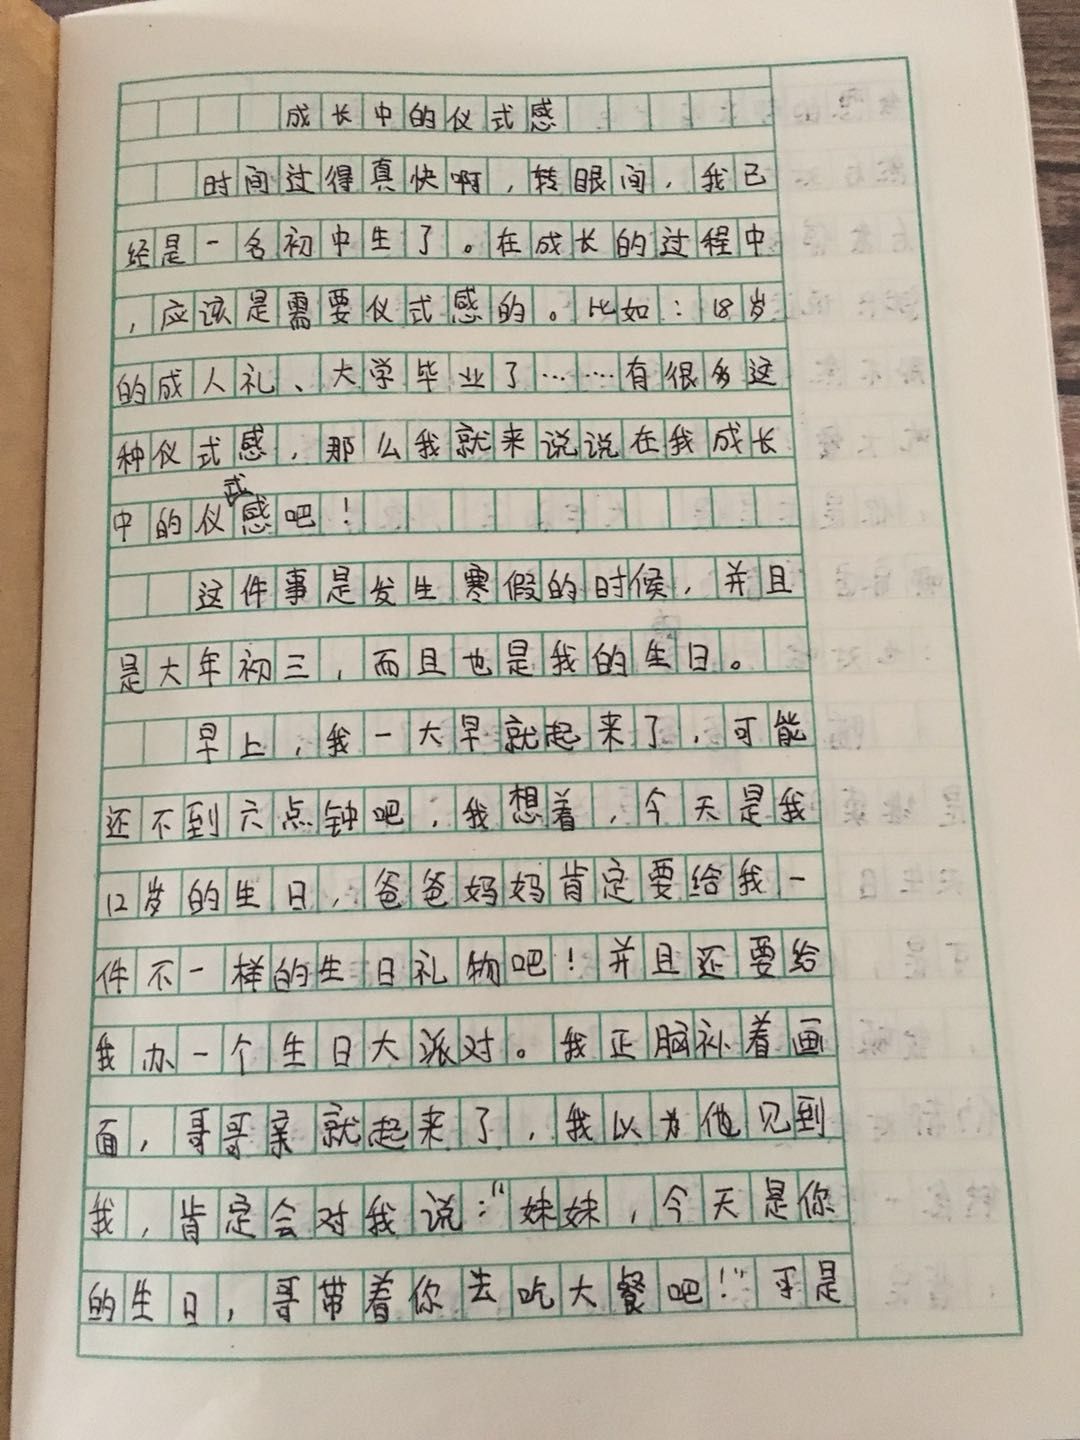 成长中的仪式感
时间过得真快啊，转眼间，我已
经是一名初中生了。在成长的过程中
，应该是需要仪式感的。比如：18岁
的成人礼、大学毕业了……有很多这
种仪式感，那么我就来说说在我成长
中的仪式感吧！
这件事是发生寒假的时候，并且
是大年初三，而且也是我的生日。
早上，我一大早就起来了，可能
还不到六点钟吧，我想着，今天是我
12岁的生日，爸爸妈妈肯定要给我一
件不一样的生日礼物吧！并且还要给
我办一个生日大派对。我正脑补着画
面，哥哥亲就起来了，我以为他见到
我，肯定会对我说：“妹妹，今天是你
的生日，哥带着你去吃大餐吧！”于是